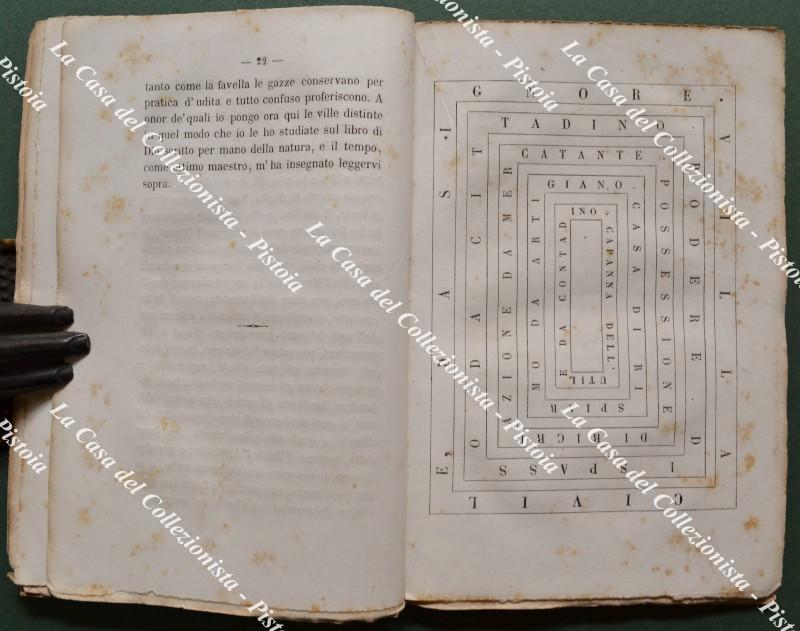 — 22 —
tanto come la favella le gazze conservano per
pratica d'udita e tutto confuso proferiscono. A
onor de'quali io pongo ora qui le ville distinte
in quel modo che io le ho studiate sul libro di
Dio scritto per mano della natura, e il tempo,
come ottimo maestro, m'ha insegnato leggervi
sopra.
VILLA CIVILE, DA SIGNORE.
PODERE DI SPASSO DA CITTADINO
POSSESSIONE DI RICREAZIONE DA MERCATANTE
CASA DI RISPIARMO DA ARTIGIANO.
CAPANNA DELL'UTILE DA CONTADINO.
La Casa del Collezionista - Pistoia
La Casa del Collezionista - Pistoia
La Casa del Collezionista - Pistoia
La Casa del Collezionista - Pistoia
La Casa del Collezionista - Pistoia
Pistoia
Pistoia